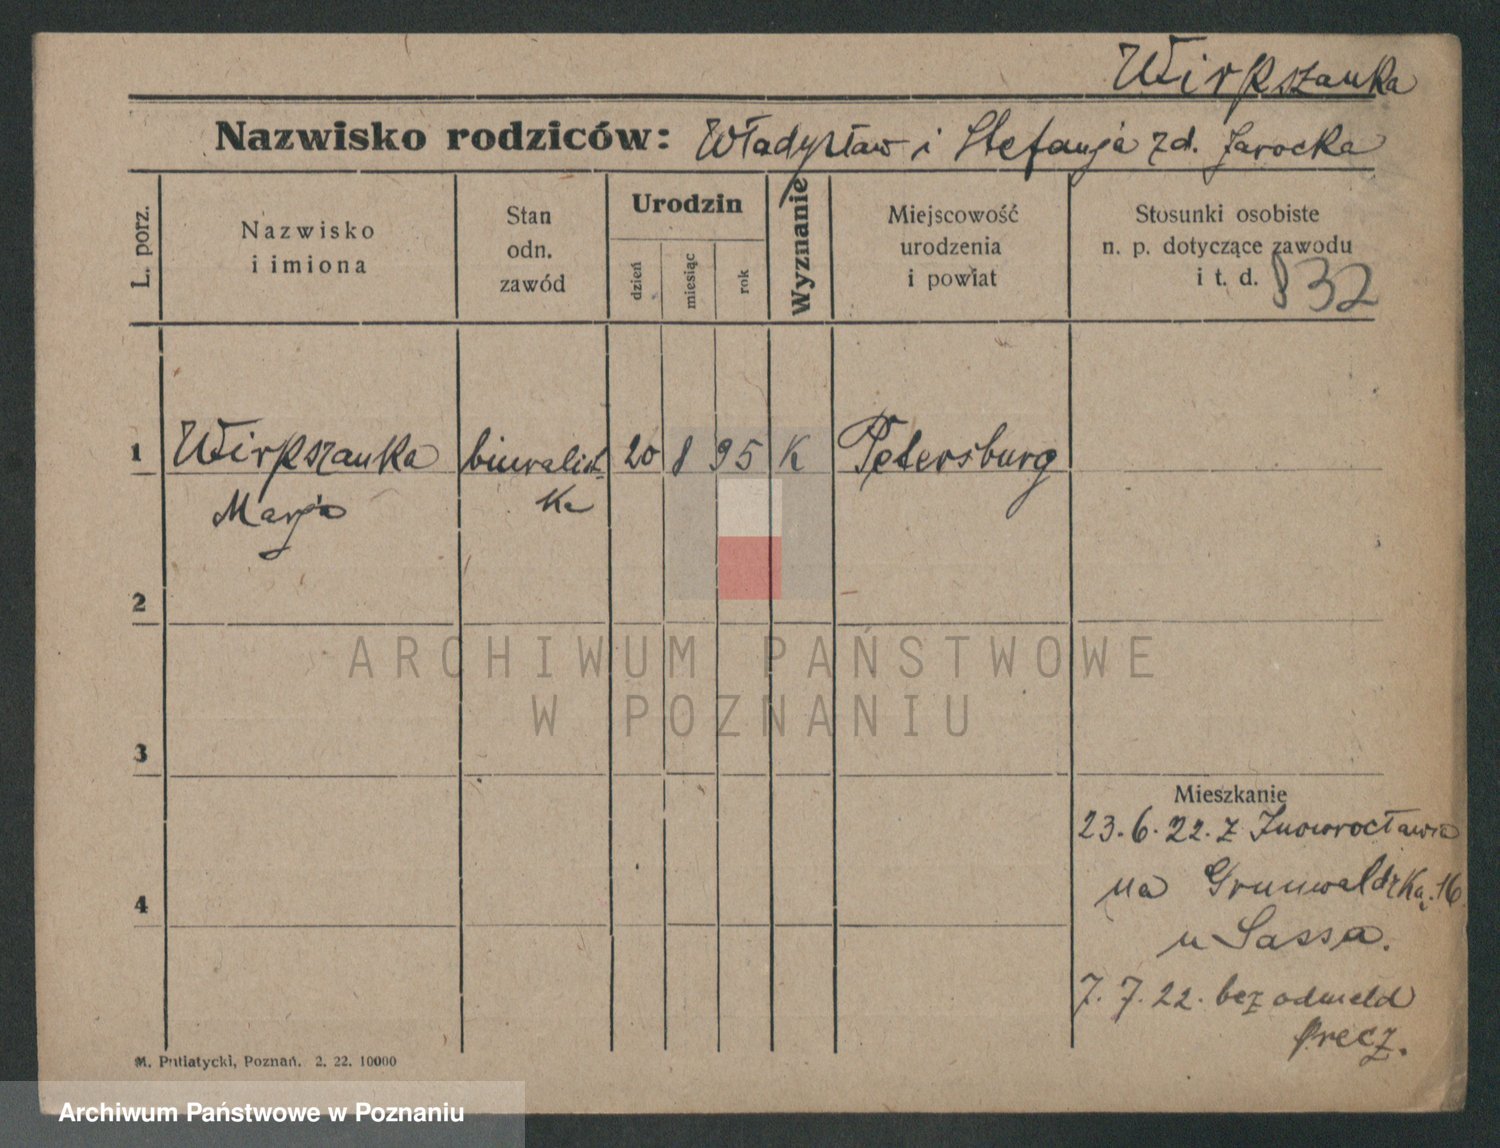 Wirpszanka
Nazwisko rodziców: Władysław i Stefanja zd. Jarocka
L. porz.
Nazwisko
i imiona
Stan
odn.
zawód
Urodzin
dzień
miesiąc
rok
Wyznanie
Miejscowość
urodzenia
i powiat
Stosunki osobiste
n. p. dotyczące zawodu
i t. d. 832
1 Wirpszanka biuralist- 20 8 95 K Petersburg
Marja ka
2
ARCHIWUM PAŃSTWOWE
W POZNANIU
3
Mieszkanie
23.6.22. z Inowrocławia
na Grunwaldzką. 16
4
u Sassa.
7.7.22. bez odmeld
precz.
M. Putiatycki, Poznań. 2. 22. 10000
Archiwum Państwowe w Poznaniu